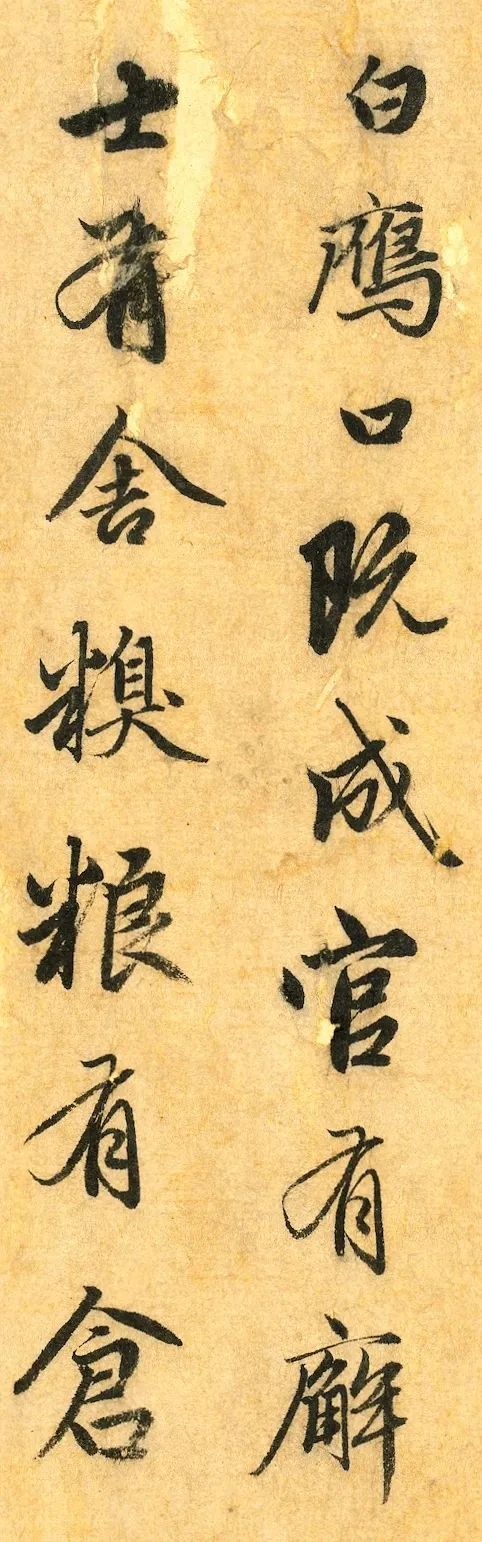 白鹰口既成官有廨
士有舍糗粮有倉